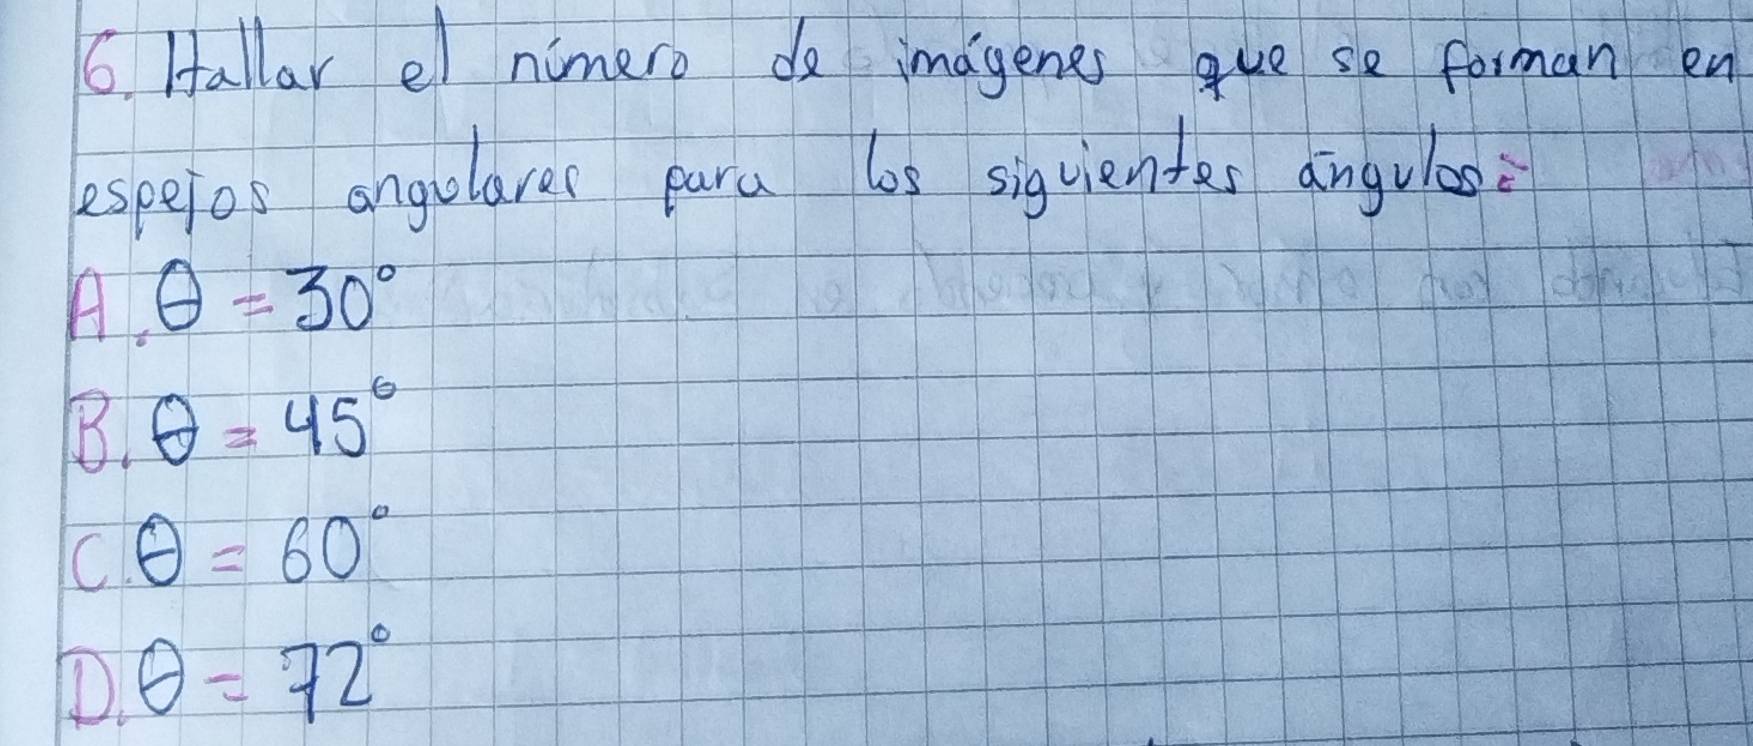 6. Hallar el número de imágenes que se forman en
espejos angulares para los siguientes ángulos:
A. θ = 30°
B. θ = 45°
C. θ = 60°
D. θ = 72°